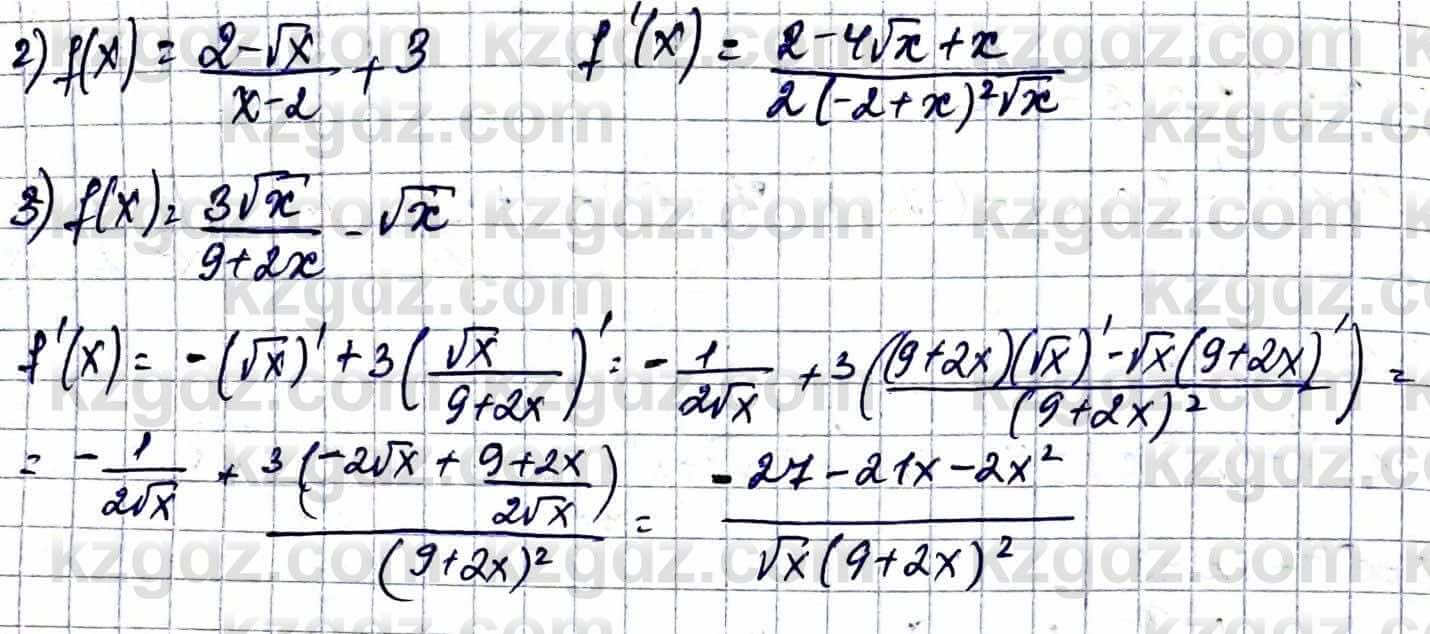 2) f(x) = (2-√x)/(x-2) + 3 f'(x) = (2-4√x+x)/(2(-2+x)²√x)
3) f(x) = 3√x/(9+2x) - √x
f'(x) = -(√x)' + 3(√x/(9+2x))' = -1/(2√x) + 3(((9+2x)(√x)'-√x(9+2x)')/(9+2x)²) =
= -1/(2√x) + 3(-2√x + (9+2x)/(2√x))/(9+2x)² = (-27-21x-2x²)/(√x(9+2x)²)
kzgdz.com